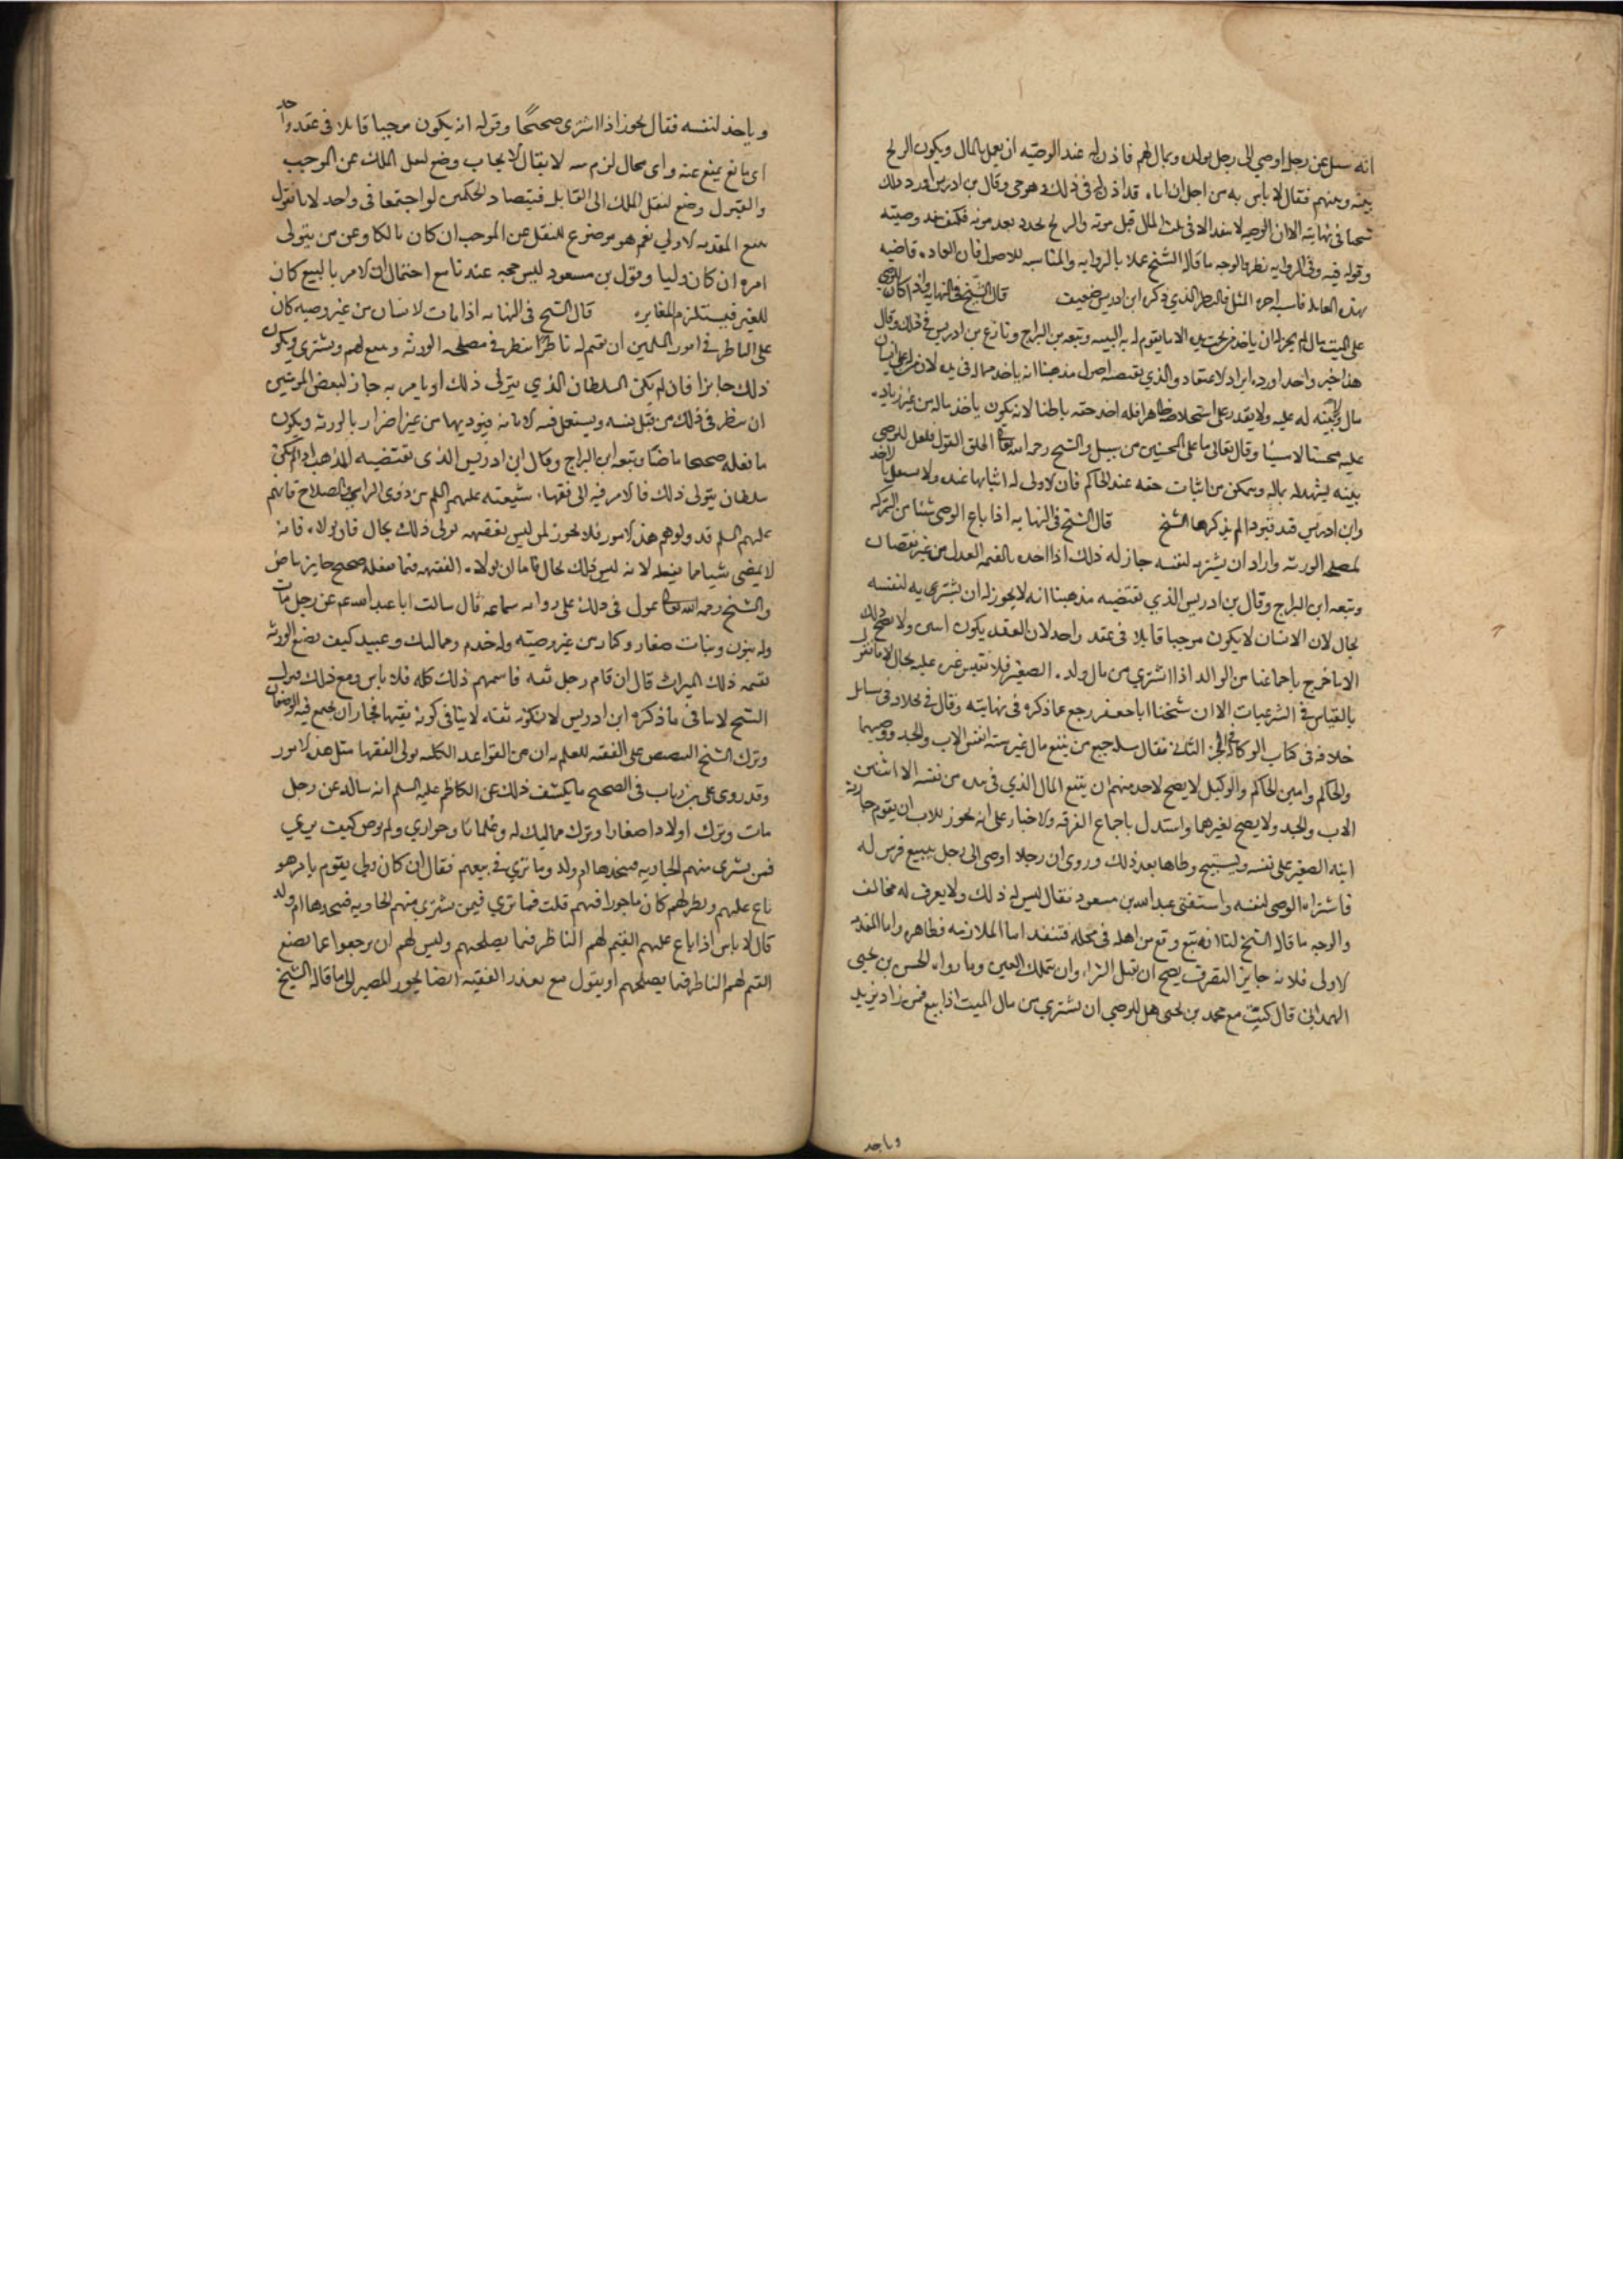 انه سئل عن رجل اوصى الى رجل بولده وبمال لهم فاذن له عند الوصيه ان يعمل بالمال ويكون الربح
بينه وبينهم فقال لا باس به من اجل ان اباه قد اذن له فى ذلك وهو حى وقال بن ادريس اورد ذلك
شيخنا فى نهايته الا ان الوصيه لا تنفذ الا فى ثلث المال قبل موته والربح تجدد بعد موته فكيف تنفذ وصيته
وقوله فيه وفى الروايه نظر والوجه ما قاله الشيخ عملا بالروايه والمناسبه للاصول فان العاده قاضيه
بهذه المعامله فاشبه اجره المثل فالنظر الذي ذكره ابن ادريس ضعيف قال الشيخ فى النهايه واذا كان للوصى
على الميت مال لم يجز له ان ياخذ من تحت يده الا ما يقوم له به البينه وتبعه بن البراج ونازع بن ادريس فى ذلك وقال
هذا خبر واحد اورده ايراد لا اعتقاد والذي يقتضيه اصول مذهبنا انه ياخذ مما له فى يده لان من له على انسان
مال ولا بينه له عليه ولا يقدر على استخلاصه ظاهرا فله اخذ حقه باطنا لانه يكون ياخذ ماله من غير زياده
عليه محسنا لا مسيئا وقال تعالى ما على المحسنين من سبيل والشيخ رحمه الله تعالى اطلق القول فلعل للوصى
بينه يشهد له بماله ويتمكن من اثبات حقه عند الحاكم فان الاولى له اثباتها عنده ولا يستعمل بالاخذ
وابن ادريس قد قيود الم يذكرها الشيخ قال الشيخ فى النهايه اذا باع الوصى شيئا من التركه
لمصلحه الورثه واراد ان يشتريه لنفسه جاز له ذلك اذا اخذه بالقيمه العدل من غير نقصان
وتبعه ابن البراج وقال بن ادريس الذي تقتضيه مذهبنا انه لا يجوز له ان يشتريه لنفسه
بحال لان الانسان لا يكون موجبا قابلا فى عقد واحد لان العقد يكون اثنين ولا يصح ذلك
الا ما خرج باجماعنا من الوالد اذا اشترى من مال ولده الصغير فلا نقيس غيره عليه بحال لانا لا نقول
بالقياس فى الشرعيات الا ان شيخنا ابا جعفر رجع عما ذكره فى نهايته وقال فى خلافه فى مسائل
خلافه فى كتاب الوكاله فى الجزء الثانى فقال مسله جميع من يبيع مال غيره سته انفس الاب والجد ووصيهما
والحاكم وامين الحاكم والوكيل لا يصح لاحد منهم ان يبيع المال الذي فى يده من نفسه الا اثنين
الاب والجد ولا يصح لغيرهما واستدل باجماع الفرقه والاخبار على انه يجوز للاب ان يقوم جاريه
ابنه الصغير على نفسه ويستبيح وطاها بعد ذلك وروى ان رجلا اوصى الى رجل ببيع فرس له
فاشتراه الوصى لنفسه واستفتى عبدالله بن مسعود فقال ليس له ذلك ولا يعرف له مخالف
والوجه ما قاله الشيخ لنا انه بيع وقع من اهله فى محله فينفذ اما الملازمه فظاهره واما المقدمه
الاولى فلانه جايز التصرف يصح ان يقبل الشراء وان يتملك العين وما رواه الحسن بن يحيى
الهمدانى قال كتبت مع محمد بن يحيى هل للوصي ان يشتري من مال الميت اذا بيع فمن زاد يزيد
وياخذ
وياخذ لنفسه فقال يجوز اذا اشترى صحيحا وقوله انه يكون موجبا قابلا فى عقد واحد
اى مانع يمنع عنه واى محال لزم منه لا يقال الايجاب وضع لنقل الملك عن الموجب
والقبول وضع لنقل الملك الى القابل فيتضاد الحكمين لو اجتمعا فى واحد لانا نقول
نمنع المقدمه الاولي نعم هو موضوع للنقل عن الموجب ان كان مالكا وعن من يتولى
امره ان كان وليا وقول بن مسعود ليس حجه عندنا مع احتمال ان الامر بالبيع كان
للغير فيستلزم المغايره قال الشيخ فى النهايه اذا مات الانسان من غير وصيه كان
على الناظر فى امور المسلمين ان يقيم له ناظرا ينظر فى مصلحه الورثه ويبيع لهم ويشترى ويكون
ذلك جايزا فان لم يكن السلطان الذي يتولى ذلك او يامر به جاز لبعض المومنين
ان ينظر فى ذلك من قبل نفسه ويستعمل فيه الامانه فيوديها من غير اضرار بالورثه ويكون
ما يفعله صحيحا ماضيا وتبعه ابن البراج وقال ابن ادريس الذى تقتضيه المذهب اذا لم يكن
سلطان يتولى ذلك فالامر فيه الى فقهاء شيعته عليهم السلم من ذوى الراى والصلاح فانهم
عليهم السلم قد ولوهم هذه الامور فلا يجوز لمن ليس بفقيه تولى ذلك بحال فان تولاه فانه
لا يمضى شيا مما يفعله لانه ليس ذلك بحال فاما ان تولاه الفقيه فما يفعله صحيح جايز ماض
والشيخ رحمه الله تعالى عول فى ذلك على روايه سماعه قال سالت ابا عبد الله عم عن رجل مات
وله بنون وبنات صغار وكبار من غير وصيته وله خدم ومماليك وعبيد كيف يصنع الورثه
بقسمه ذلك الميراث قال ان قام رجل ثقه قاسمهم ذلك كله فلا باس ومع ذلك فقول
الشيخ لا ينافى ما ذكره ابن ادريس لان كونه ثقه لا ينافى كونه فقيها فجاز ان يجمع فيه الوصفان
وترك الشيخ التنصيص على الفقه للعلم به ان من القواعد الكليه تولى الفقها مثل هذه الامور
وقد روى على بن رباب فى الصحيح ما يكشف ذلك عن الكاظم عليه السلم انه ساله عن رجل
مات وترك اولادا صغارا وترك مماليك له وغلمانا وجواري ولم يوص كيف يرى
فمن يشرى منهم الجاريه فيتخذها ام ولد وما ترى فى بيعهم فقال ان كان ولى يقوم بامرهم
باع عليهم ونظر لهم كان ماجورا فيهم قلت فما ترى فيمن يشترى منهم الجاريه فيتخذها ام ولد
قال لا باس اذا باع عليهم القيم لهم الناظر فيما يصلحهم وليس لهم ان يرجعوا عما يصنع
القيم لهم الناظر فيما يصلحهم او يتول مع تعذر الفقيه ايضا يجوز المصير الى ما قاله الشيخ